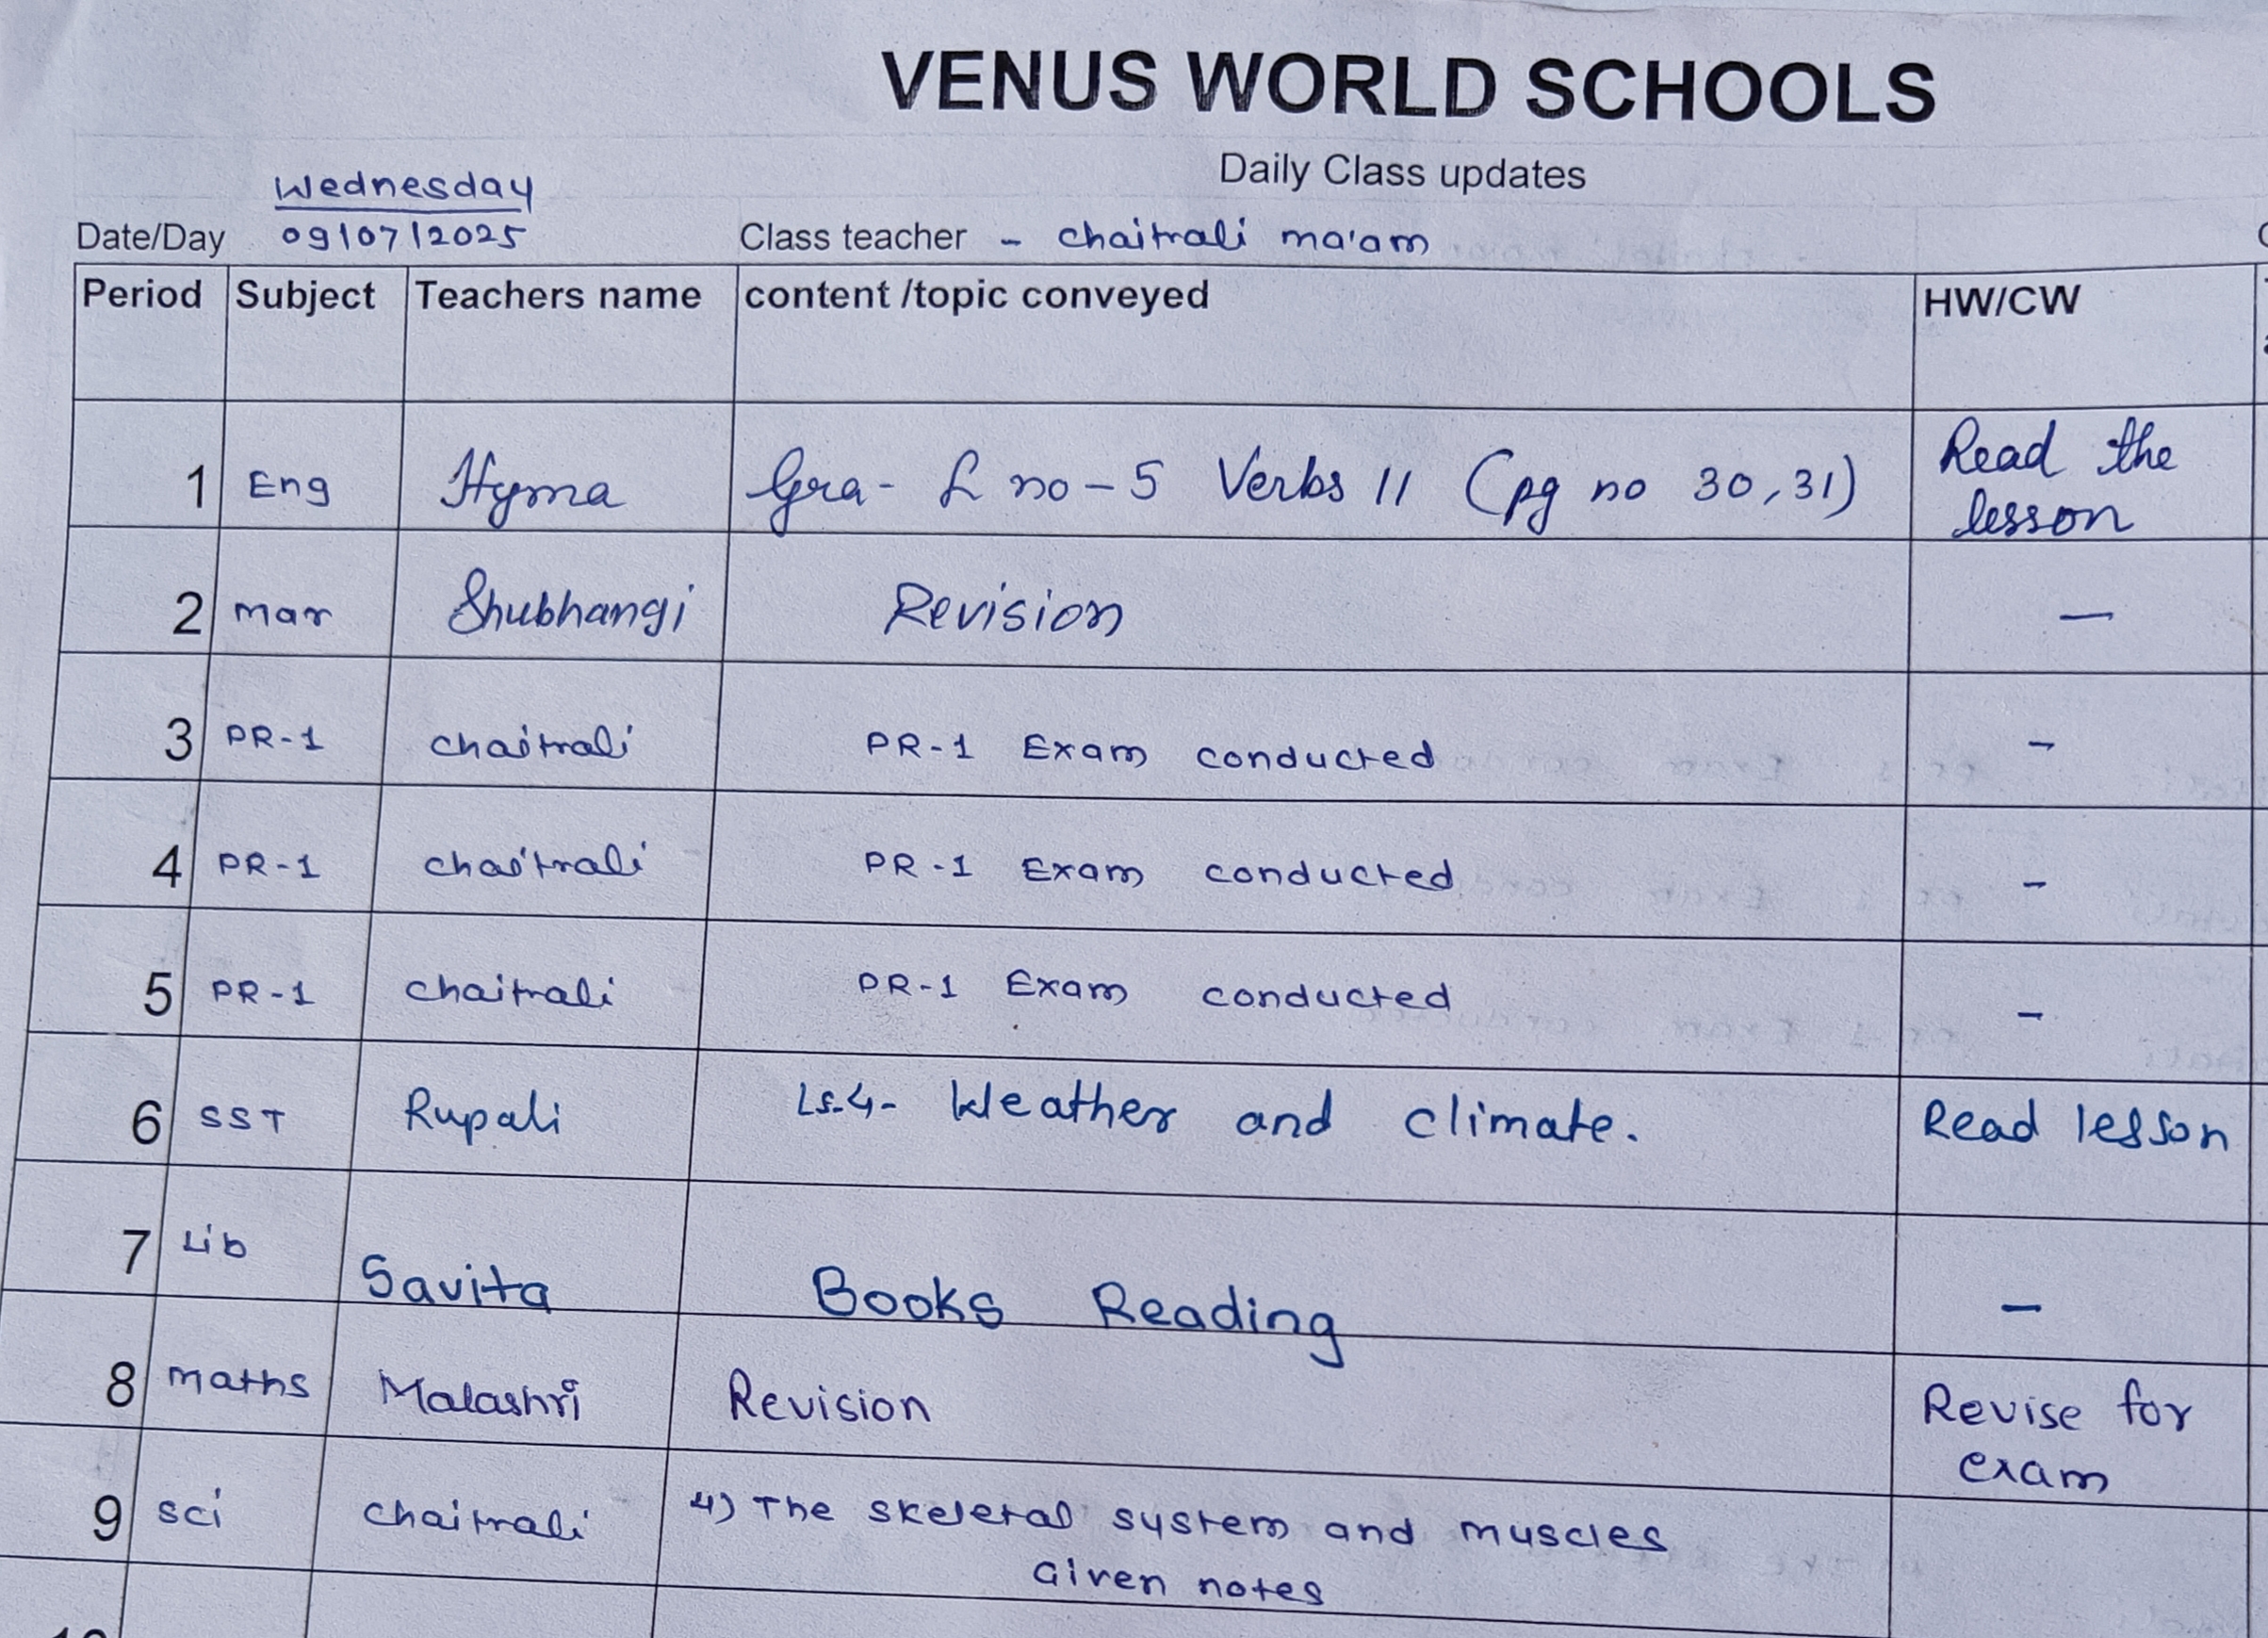 VENUS WORLD SCHOOLS
Daily Class updates
Wednesday
Date/Day 09/07/2025 Class teacher - chaitrali ma'am
Period Subject Teachers name content /topic conveyed HW/CW
1 Eng Hyma Gra- L no - 5 Verbs II (pg no 30, 31) Read the
lesson
2 mar Shubhangi Revision —
3 PR-1 chaitrali PR-1 Exam conducted -
4 PR-1 chaitrali PR-1 Exam conducted -
5 PR-1 chaitrali PR-1 Exam conducted -
6 SST Rupali Ls-4- Weather and climate. Read lesson
7 Lib Savita Books Reading —
8 maths Malashri Revision Revise for
exam
9 sci chaitrali 4) The skeletal system and muscles
Given notes